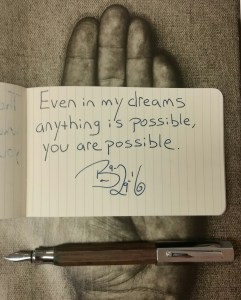 Even in my dreams
anything is possible,
you are possible.